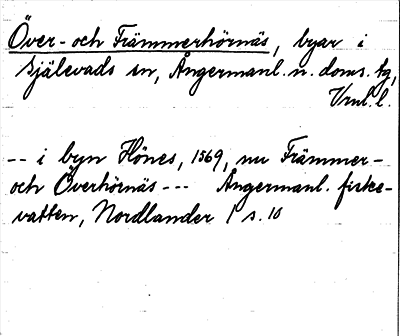 Över- och Främmerhörnäs, byar i
Själevads sn, Ångermanl. n. doms. tg,
Vnl. l.
-- i byn Hönes, 1569, nu Främmer-
och Överhörnäs --- Ångermanl. fiske-
vatten, Nordlander 1 s. 10